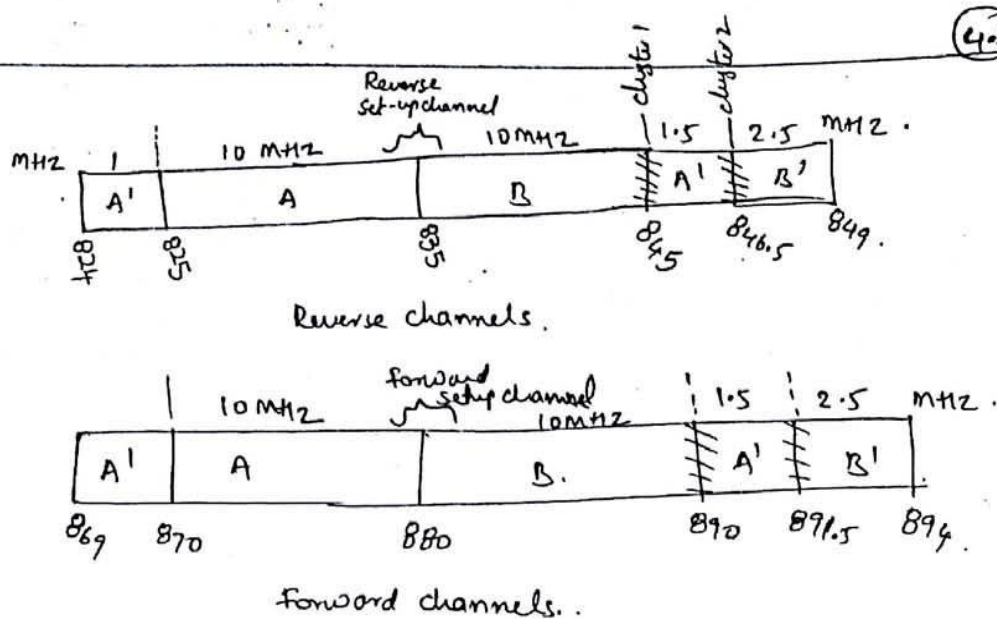 4.
cluster 1
cluster 2
Reverse
set-up channel
MHZ 1 10 MHZ 10 MHZ 1.5 2.5 MHZ.
A' A B A' B'
824 825 835 845 846.5 849.
Reverse channels.
forward
setup channel
10 MHZ 10MHZ 1.5 2.5 MHZ.
A' A B. A' B'
869 870 880 890 891.5 894.
Forward channels..